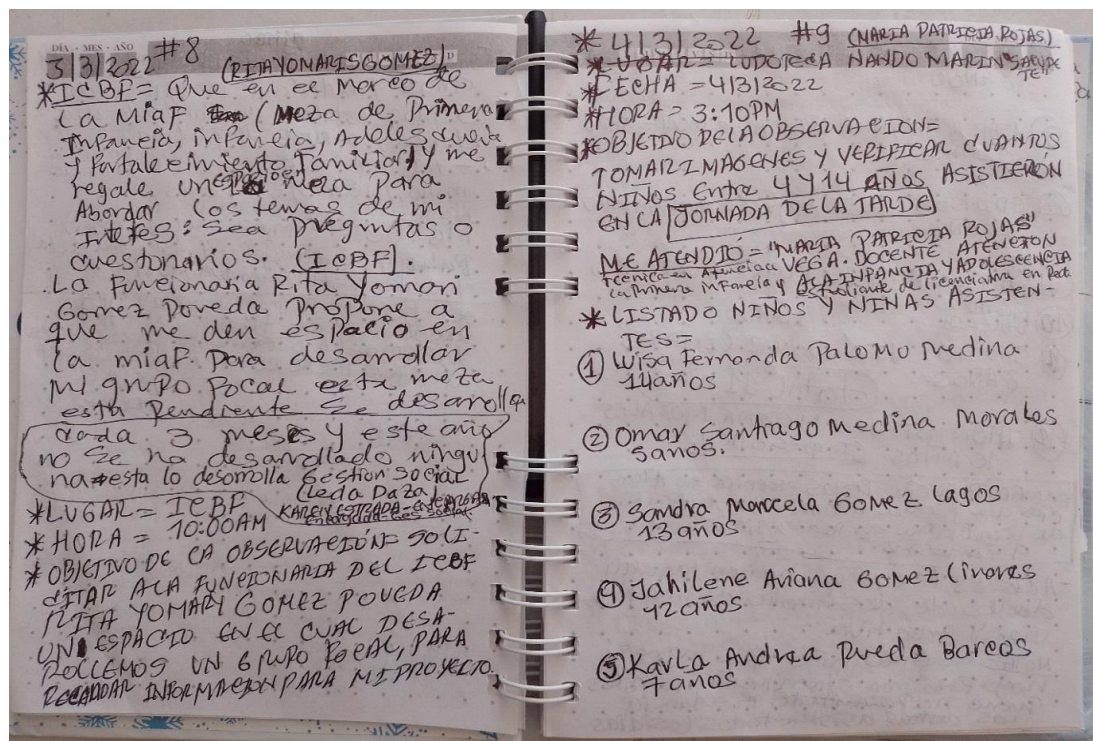 DÍA · MES · AÑO
#8
3/3/2022 (RITA YOMARIS GOMEZ)
*ICBF= Que en el marco de
La Miaf (Meza de Primera
Infancia, infancia, Adolescencia
y Fortalecimiento Familiar) y me
regale un espacio en meza para
Abordar los temas de mi
Interes: sea preguntas o
cuestonarios. (ICBF).
La Funcionaria Rita Yomari
Gomez Poveda Propone a
que me den espacio en
la miaf. para desarrollar
mi grupo Focal esta meza
esta Pendiente se desarrolla
cada 3 meses y este año
no se ha desarrollado ningu
na esta lo desarrolla Gestion social
Cleda Daza
KAREN ESTRADA - ENCARGADA
*LUGAR= ICBF
*HORA = 10:00AM
*OBJETIVO DE LA OBSERVACIÓN= SOLI-
CITAR A LA FUNCIONARIA DEL ICBF
RITA YOMARY GOMEZ POVEDA
UN ESPACIO EN EL CUAL DESA-
ROLLEMOS UN GRUPO FOCAL, PARA
RECAUDAR INFORMACION PARA MI PROYECTO.
* 4/3/2022 #9 (MARIA PATRICIA ROJAS)
*LUGAR= LUDOTECA NANDO MARIN "SARUPE
TE"
*FECHA = 4/3/2022
*HORA = 3:10PM
*OBJETIVO DE LA OBSERVACION=
TOMAR IMAGENES Y VERIFICAR CUANTOS
NIÑOS Entre 4 Y 14 AÑOS ASISTIERÓN
EN LA JORNADA DE LA TARDE
ME ATENDIÓ = "MARIA PATRICIA ROJAS"
VEGA. DOCENTE ATENCION
Tecnica en Atencion a
A LA INFANCIA Y ADOLESCENCIA
la Primera infancia y estudiante de licenciatura en
*LISTADO NIÑOS Y NIÑAS ASISTEN-
TES=
① Wisa Fernanda Palomo Medina
14 años
② Omar Santiago Medina Morales
5 años.
③ Sandra Marcela Gomez Lagos
13 años
④ Jahilene Aviana Gomez Linares
12 años
⑤ Karla Andrea Pueda Barcos
7 años